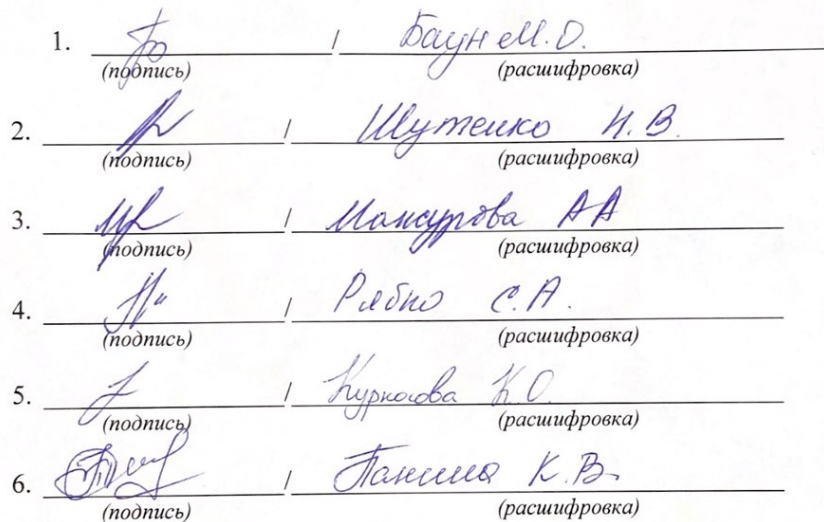 1. / Баун М.О.
(подпись) (расшифровка)
2. / Шутенко Н.В.
(подпись) (расшифровка)
3. / Мансурова АА
(подпись) (расшифровка)
4. / Рябко С.А.
(подпись) (расшифровка)
5. / Курносова К.О.
(подпись) (расшифровка)
6. / Панина К.В.
(подпись) (расшифровка)